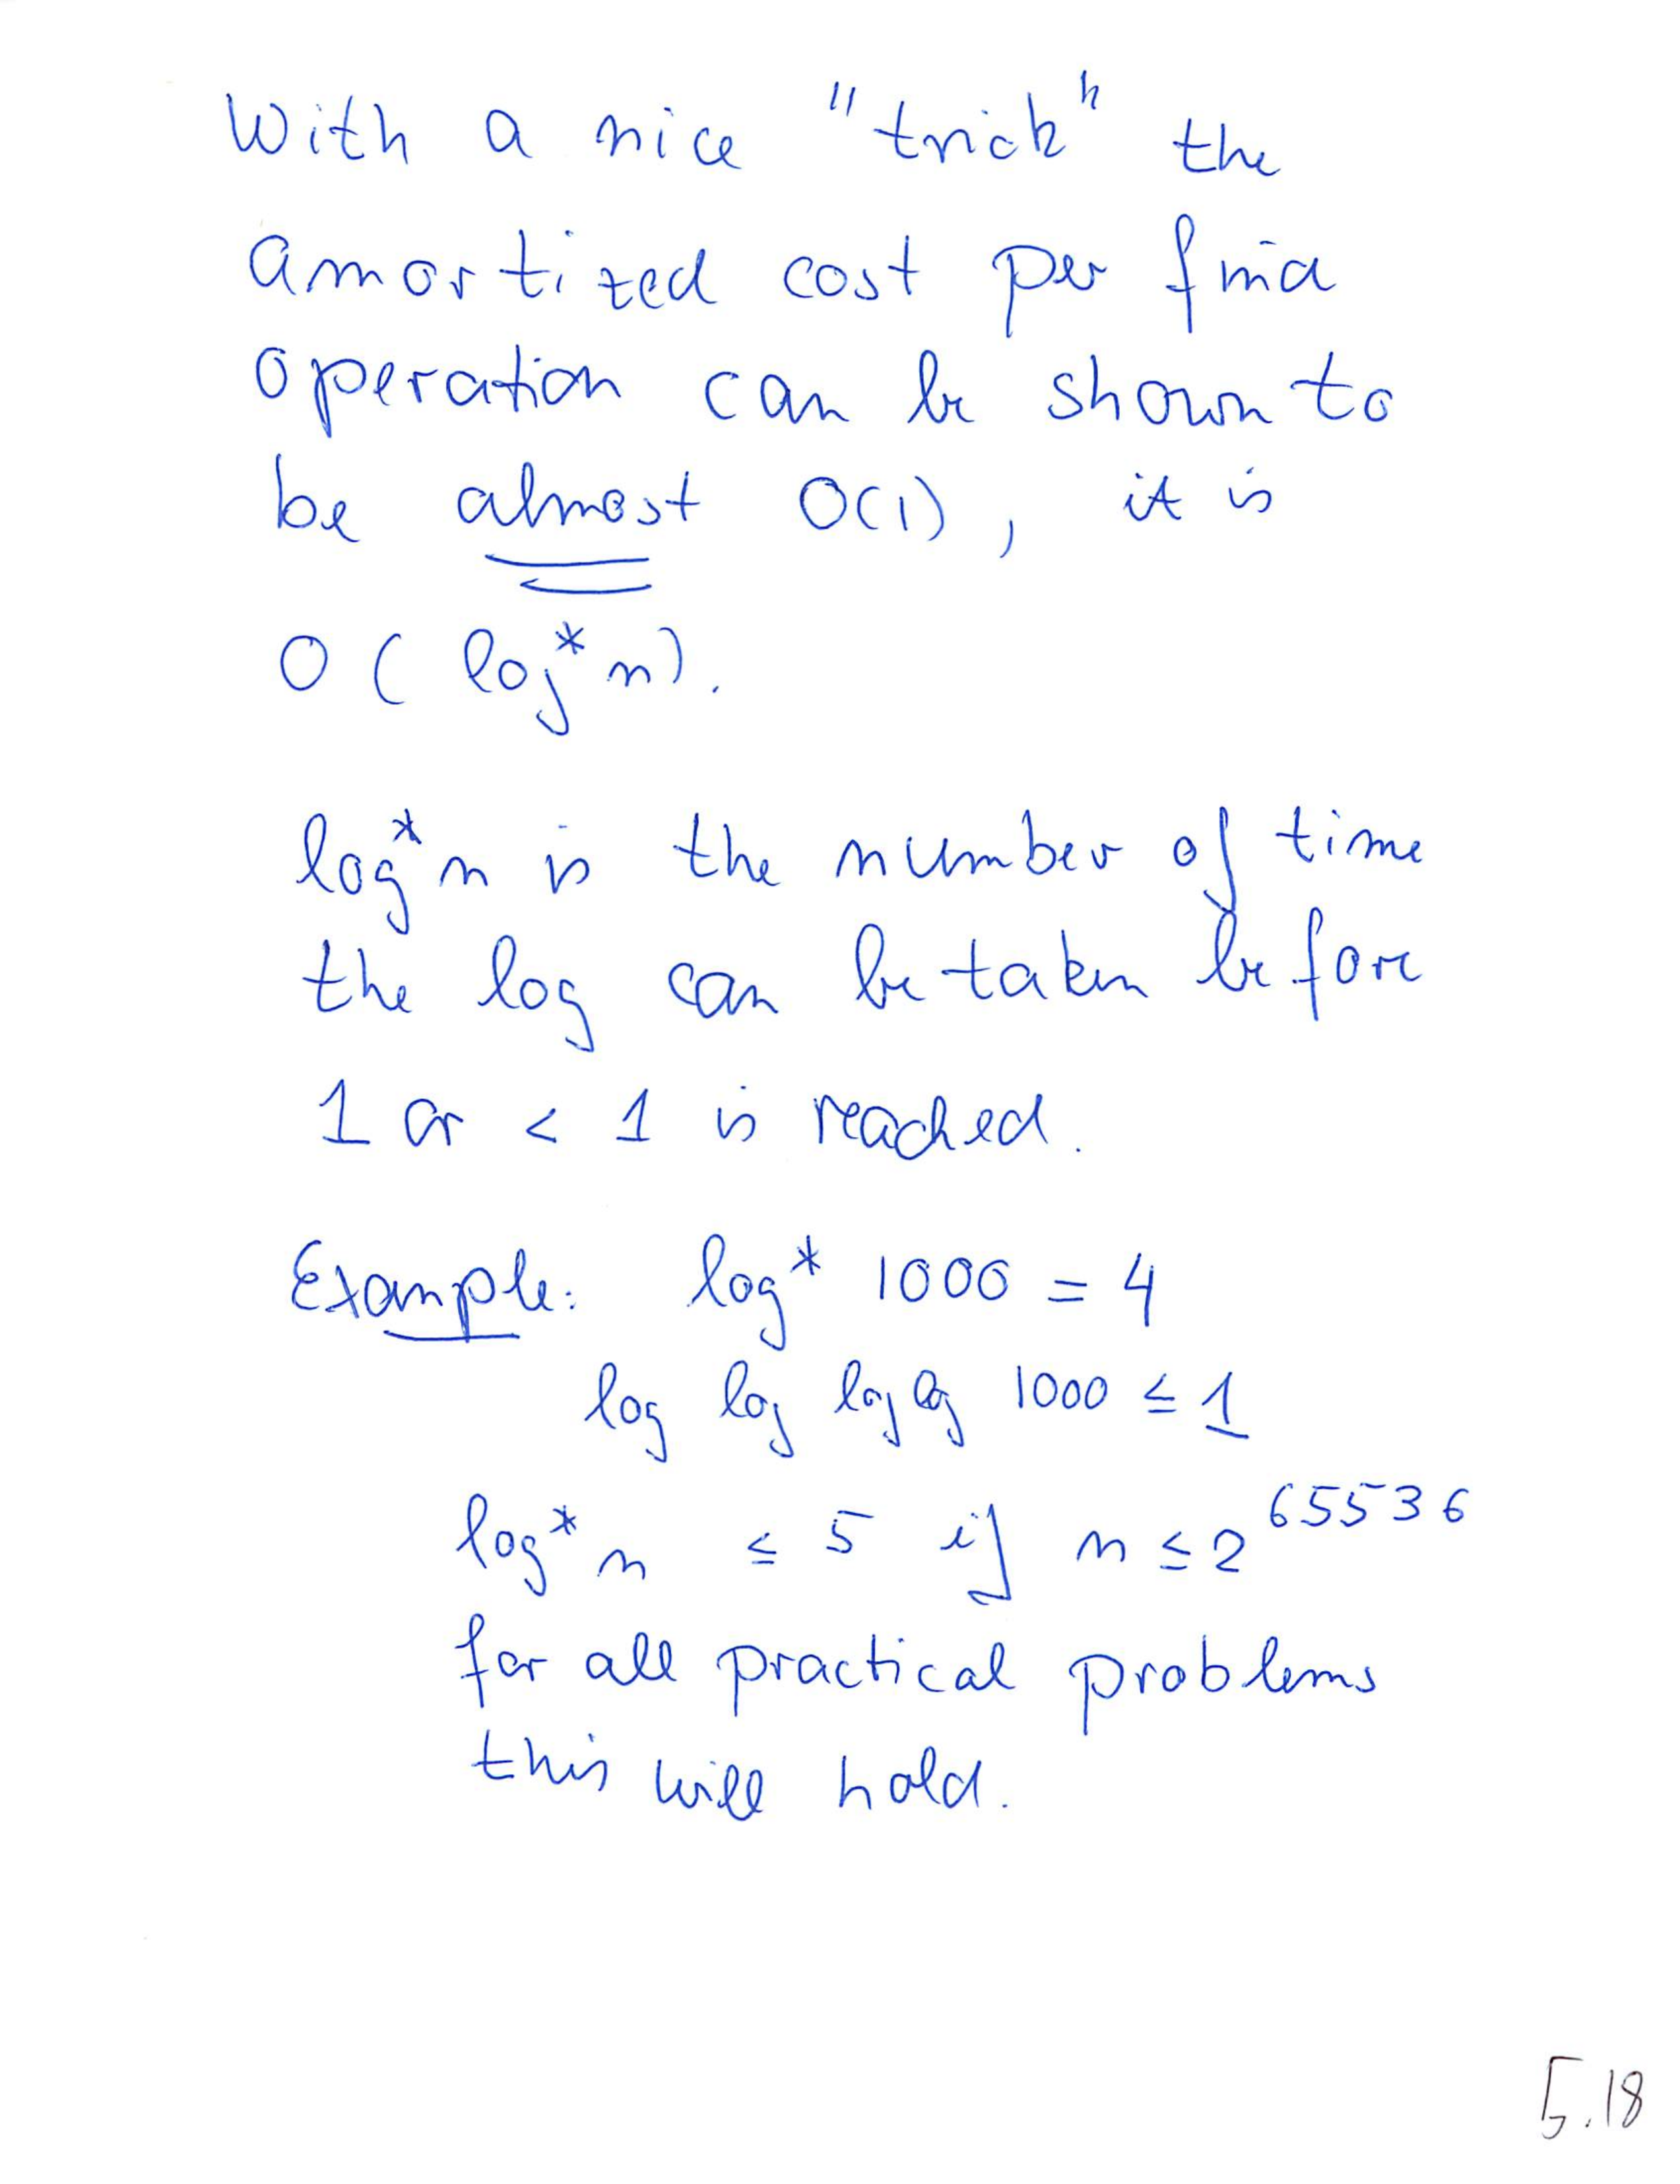 With a nice "trick" the
amortized cost per find
operation can be shown to
be almost O(1), it is
O(log* n).
log* n is the number of time
the log can be taken before
1 or < 1 is reached.
Example: log* 1000 = 4
log log log log 1000 ≤ 1
log* n ≤ 5 if n ≤ 2^65536
for all practical problems
this will hold.
5.18